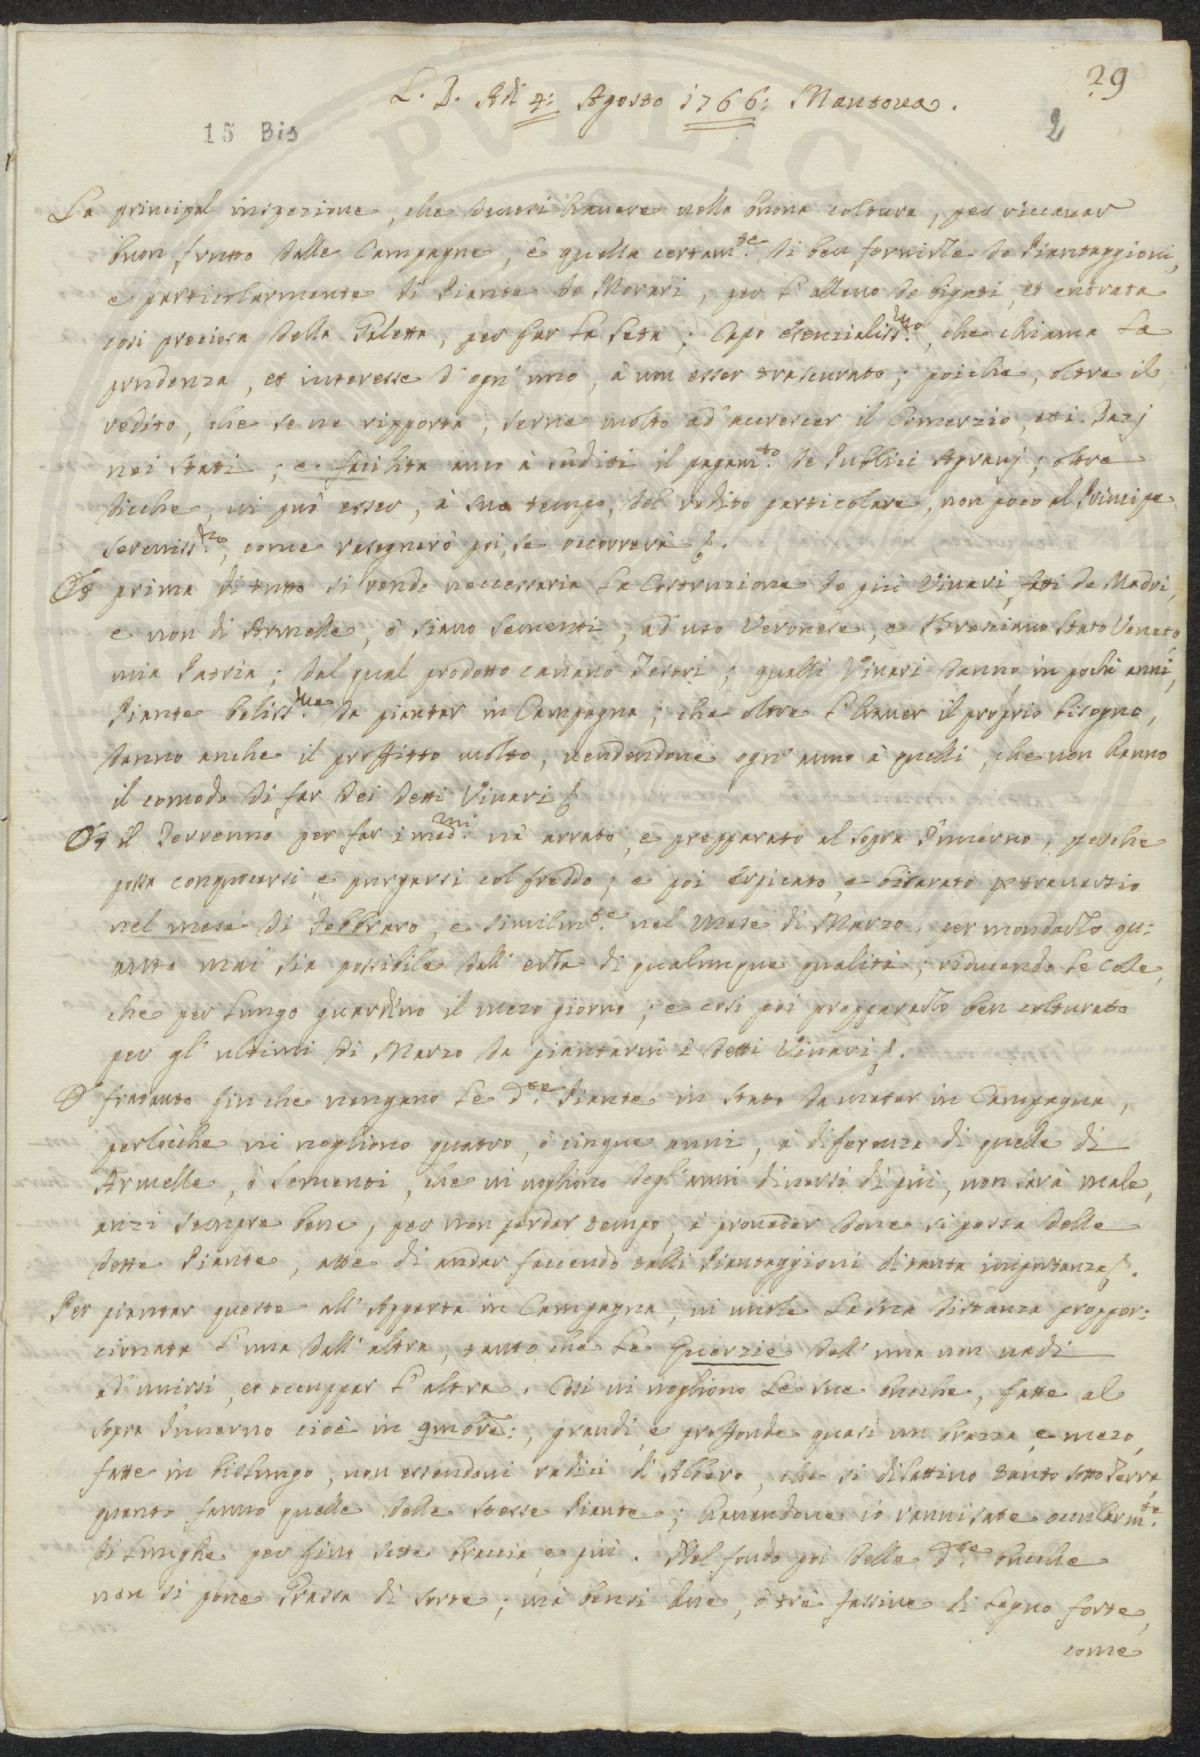 29
L. D. Adi 4: Agosto 1766: Mantova.
15 Bis
2
La principal inspezione, che devesi havere nella buona coltura, per riccavar
buon frutto dalle Campagne, è quella certam.te di ben fornirle de Piantaggioni,
e particolarmente di Piante de Morari, per l'allevo de bigati, et entrata
cosi preciosa della Galetta, per far la Seta; Capo esenzialiss.mo, che chiama la
prudenza, et interesse d'ogn'uno, à non esser trascurato; poiche, oltre il
redito, che se ne ripporta, serve molto ad'accrescer il Comerzio, etti Dazj
nei Stati; e facilita anco à sudditi il pagam.to de Publici Agravj; oltre
dicche, vi può esser, à suo tempo, del redito particolare, non poco al Principe
Sereniss.mo, come rasegnerò poi, se occorrerà.
Et prima di tutto si rende neccessaria la Costruzione de più Vivari, fatti de Madri,
e non di Armelle, ò siano Sementi, ad'uso Veronese, e Bresciano Stato Veneto
mia Patria; dal qual prodotto cavano Tesori; qualli Vivari danno in pochi anni,
Piante beliss.me da piantar in Campagna; che oltre l'haver il proprio bisogno,
danno anche il proffitto molto, vendendone ogn'anno à quelli, che non hanno
il comodo di far dei detti Vivari
il Terrenno per far i med.mi và arrato, e prepparato al sopra Inverno, perche
possa conquocersi, e purgarsi col freddo; e poi erpicato, e bisarato p traverzio
nel mese di Febbraro, e similm.te nel Mese di Marzo, per mondarlo qu:
anto mai sia possibile dall'erba di qualunque qualità; riducendo le Cole,
che per lungo guardino il mezo giorno; e cosi poi prepararlo ben colturato
per gl'ultimi di Marzo da piantarvi i detti Vivari.
fratanto finche vengano le d.te Piante in stato da meter in Campagna,
perloche vi vogliono quatro, ò cinque anni, à diferenza di quelle di
Armelle, ò Sementi, che vi vogliono degl'anni diversi di più, non sarà male,
anzi sempre bene, per non perder tempo, à proveder dove si possa delle
dette Piante, atte di andar facendo talli Piantaggioni di tanta importanza.
Per piantar queste all'Apperta in Campagna, vi vuole la sua distanza proppor:
cionata l'una dall'altra, tanto che le Guerzie dell'una non vadi
ad'unirsi, et occuppar l'altra. Cosi vi vogliono le sue buche, fatte al
sopra Inverno cioè in 9mbre:, grandi, e proffonde quasi un brazza, e mezo,
fatte in bislungo, non essendovi radici d'Albero, che si dilattino tanto sotto Terra
quanto fanno quelle delle stesse Piante; havendone io ravvisate occularm.te
di lunghe per fino sette braccia, e più. Nel fondo poi delle d.te buche
non si pone Grassa di sorte; mà bensi due, ò trè fassine di legno forte,
come